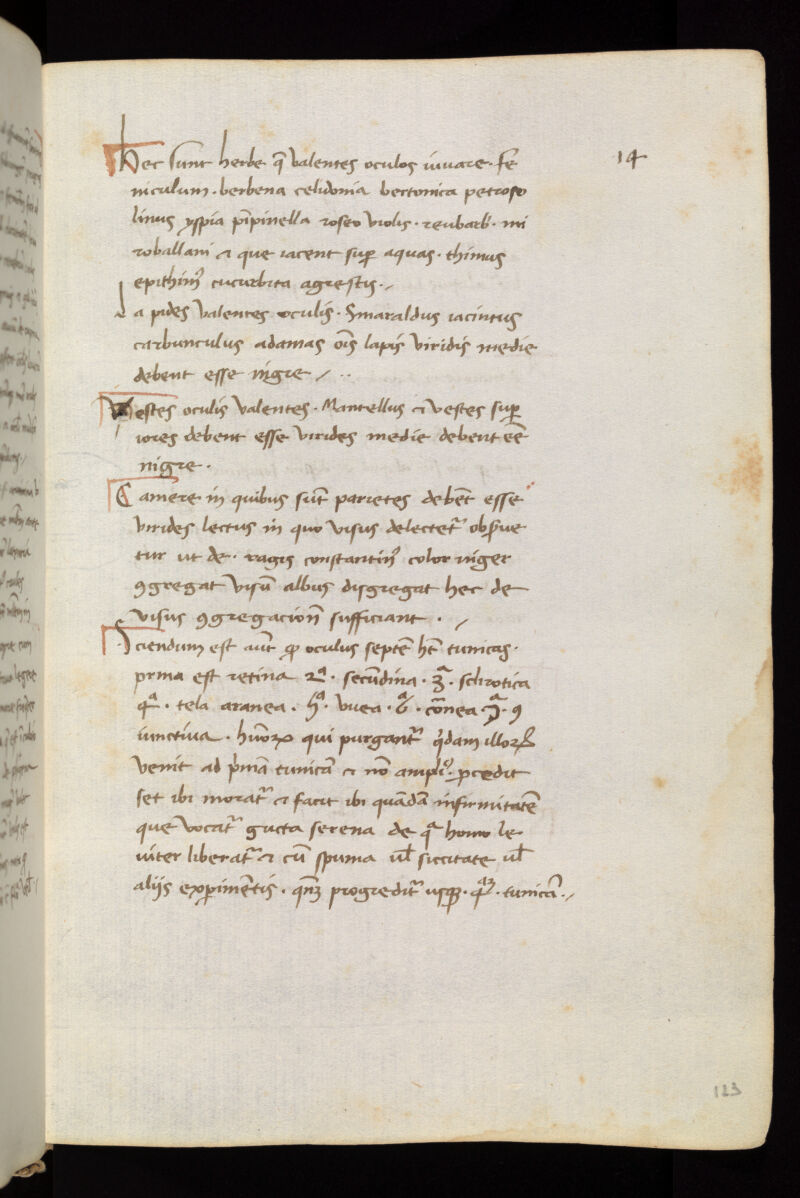 14
Hec sunt herbe q̄ valentes oculos iuuare. fe
niculum. berbena celidonia bectonica petrose
linus yspia pīpinella roseo violis. reubarb. mi
roballani et que iacent suꝑ aquas. thimus
epithimꝰ cucurbita agrestis.
la pides valentes oculis. Smaraldus iacintus
carbunculus adamas oīs lapis viridis medie
debent esse nigre
Vestes oculis valentes. Mantellus et vestes suꝑ
iores debent esse virides medie debent eē
nigre.
Camere in quibus sūt parietes debēt esse
virides lectus in quo visus delectetᷣ obẜue
tur ut de. ragis constantinꝰ color niger
ꝯgregat visū albus disgregat hec de
visus ꝯgregacionē sufficiant.
Sciendum est aūt ꝙ oculus septē hēt tunicas.
prima est retina 2ᵃ. secūdina. 3ᵃ. sclirotica
4ᵃ. tela aranea. 5ᵃ. vuea. 6ᵃ. cornea 7ᵃ. ꝯ
iunctiua. humoꝝ qui purgantᷣ qdam illoꝝ
venit ad prīmā tunicā et nō ampliꝰ. ꝓcedit
set ibi moratᷣ et facit ibi quādā infirmitatē
que vocatᷣ gucta serena de qᵃ homo le
uiter liberatᷣ et cū spuma ul̄ siccitate ul̄
aliis exꝑimētis. progreditᷣ usqꝫ. 4ᵃᵐ. tunicā.
123